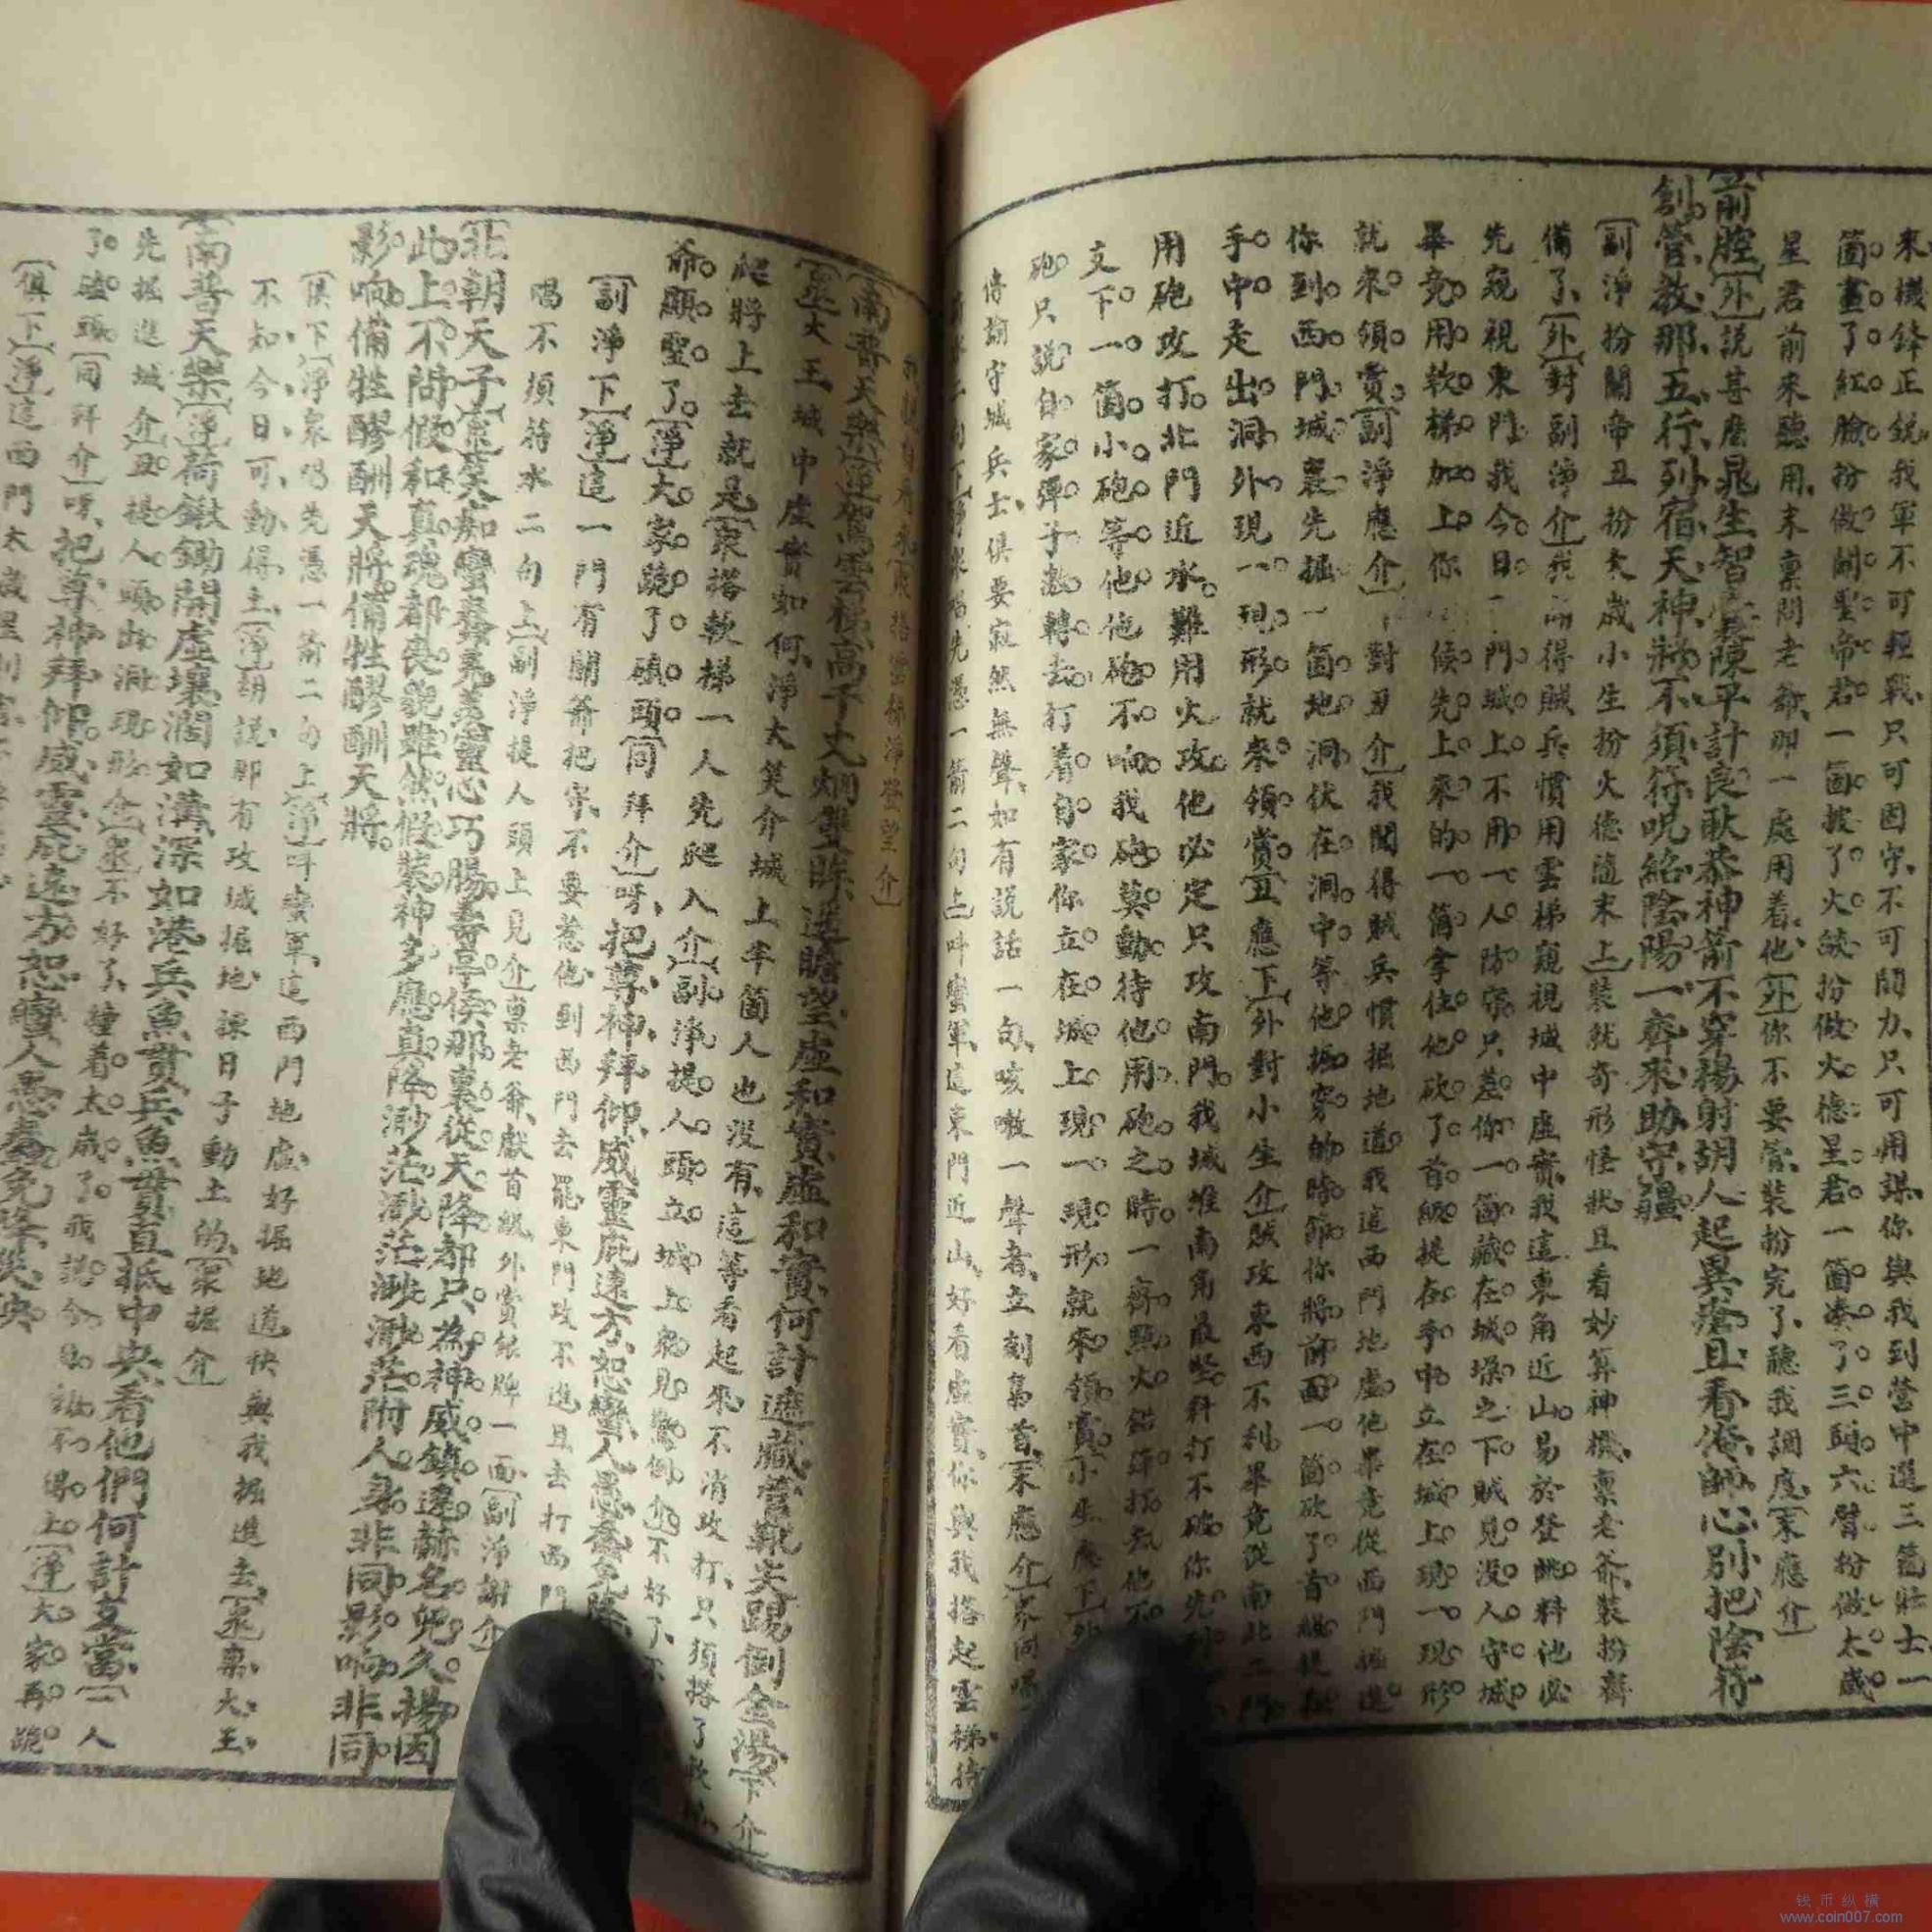 來機鋒正銳我軍不可輕戰只可固守不可鬪力只可用謀你與我到營中選三箇壯士一
箇畫了紅臉扮做關聖帝君一箇披了火燄扮做火德星君一箇湊了三頭六臂扮做太歲
星君前來聽用末稟問老爺那一處用着他外你不要管裝扮完了聽我調度末應介
前腔外說甚麼晁生智囊陳平計良耿恭神箭不穿楊射胡人起異瘡且看俺師心別把陰符
創管教那五行列宿天神將不須符呪紿陰陽一齊來助守疆
副淨扮關帝丑扮太歲小生扮火德隨末上裝就奇形怪狀且看妙算神機稟老爺裝扮齊
備了外對副淨介我 得賊兵慣用雲梯窺視城中虛實我這東角近山易於登眺料他必
先窺視東門我今日 門城上不用一人防守只差你一箇藏在城垜之下賊見没人守城
畢竟用軟梯加上你 候先上來的一箇拿住他砍了首級提在手中立在城上現一現形
就來領賞副淨應介 對丑介我聞得賊兵慣掘地道我這西門地虛他畢竟從西門掘進
你到西門城裏先掘一箇地洞伏在洞中等他掘穿的時節你將前面一箇砍了首級提在
手中走出洞外現一現形就來領賞丑應下外對小生介賊攻東西不利畢竟從南北二門
用砲攻打北門近水難用火攻他必定只攻南門我城堆南角最堅料打不破你先到
文下一箇小砲等他他砲不响我砲莫動待他用砲之時一齊點火 打 他不
砲只說自家彈子激轉去打着自家你立在城上現一現形就來領賞小生應下外
傳諭守城兵士俱要寂然無聲如有說話一句咳嗽一聲者立刻梟首末應介 同唱
二句下淨衆唱先憑一箭二句上叫蠻軍這東門近山好看虛實你與我搭起雲梯待
我親自看來衆搭雲梯淨登望介
南普天樂淨駕雲梯高千丈炯雙眸遥瞻望虛和實虛和實何計遮藏管靴尖踢倒金湯下介
衆大王城中虛實如何淨大笑介城上半箇人也没有這等看起來不消攻打只須搭了軟梯
爬將上去就是衆搭軟梯一人先爬入介副淨提人頭立城上衆見驚倒介不好了
爺顯聖了淨大家跪了磕頭同拜介呀把尊神拜仰威靈庇遠方恕蠻人愚蠢免降
副淨下淨這一門有關爺把守不要惹他到西門去罷東門攻不進且去打西門
唱不須符水二句上副淨提人頭上見介稟老爺獻首級外賞銀牌一面副淨謝介
北朝天子末笑痴蠻蠢羌羨靈心巧腸壽亭侯那裏從天降都只為神威鎮遠赫名兒久揚因
此上不問假和真魂都喪貌雖然假裝神多應真降渺茫渺茫渺渺茫附人身非同影响非同
影响備牲醪酬天將備牲醪酬天將
俱下淨衆唱先憑一箭二句上淨叫蠻軍這西門地虛好掘地道快與我掘進去衆稟大王
不知今日可動得土淨胡說那有攻城掘地揀日子動土的衆掘介
南普天樂淨荷鍬鋤開虛壤濶如溝深如港兵魚貫兵魚貫直抵中央看他們何計支當一人
先掘進城介丑提人頭出洞現形介衆不好了撞着太歲了我說今日 不得土淨大家再跪
了磕頭同拜介呀把尊神拜仰威靈庇遠方恕蠻人愚蠢免降災殃
俱下淨這西門太歲